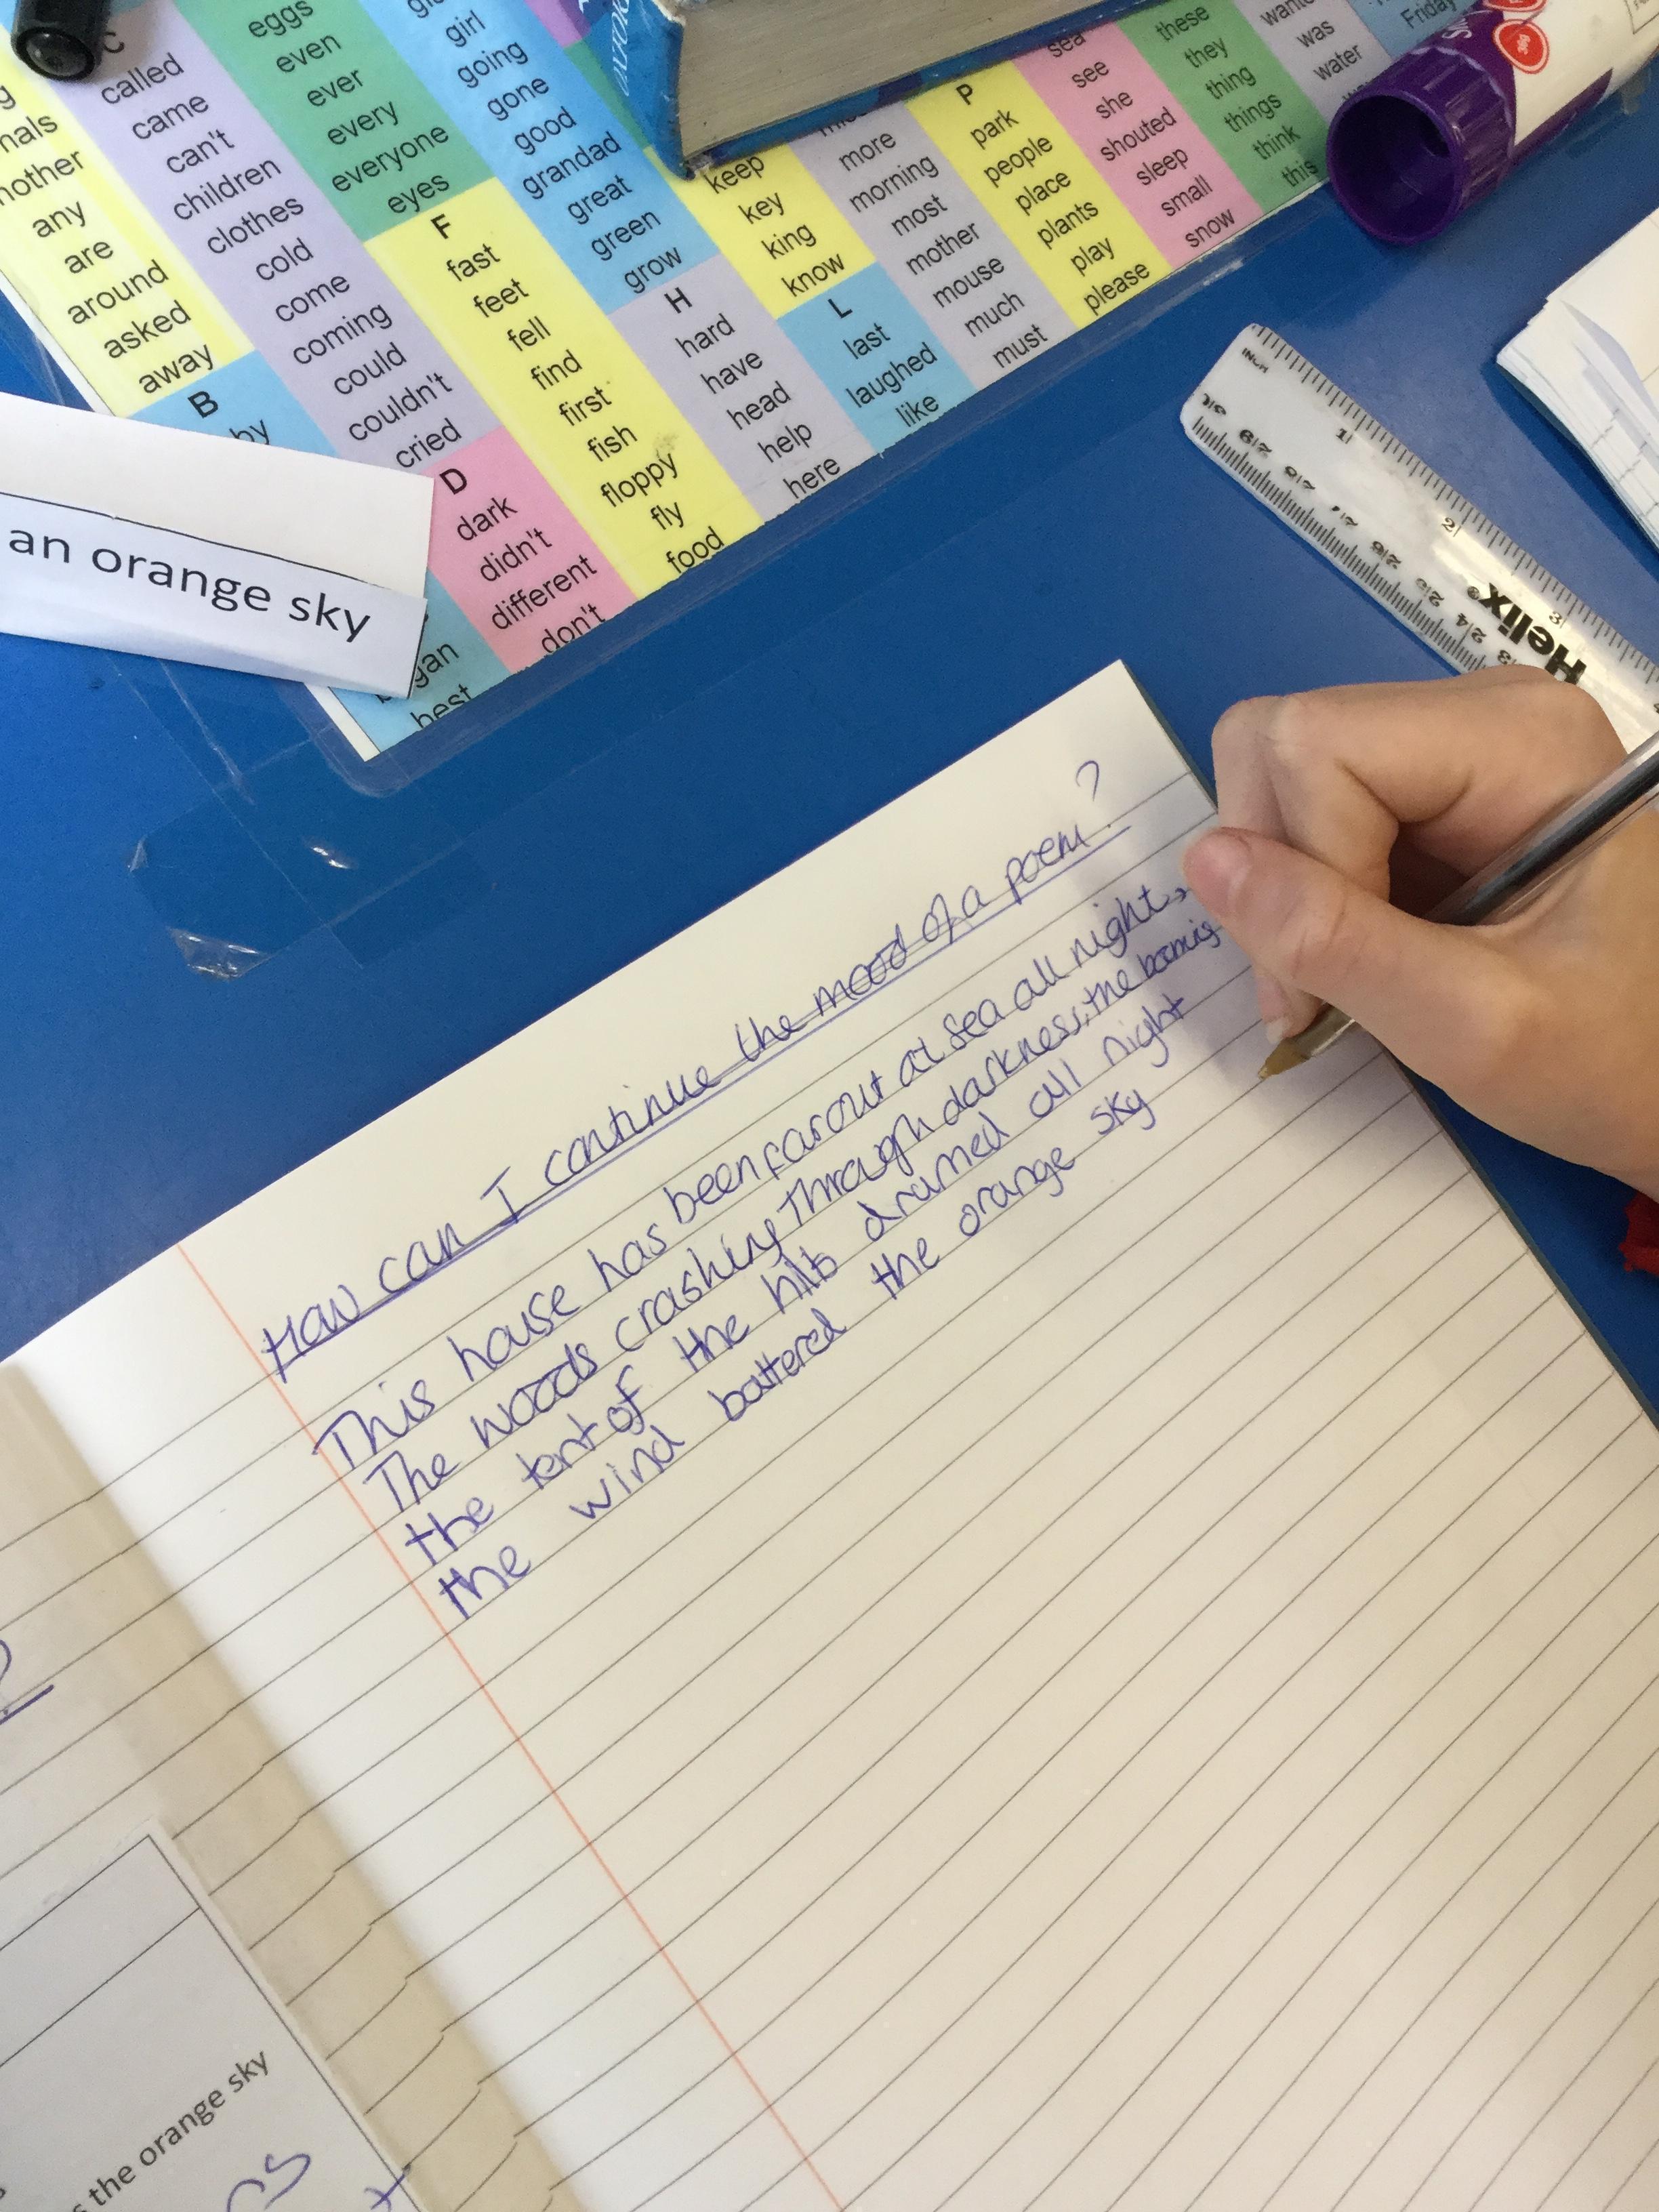 C
called
came
can't
children
clothes
cold
come
coming
could
couldn't
cried
D
dark
didn't
different
don't
any
are
around
asked
away
B
best
eggs
even
ever
every
everyone
eyes
F
fast
feet
fell
find
first
fish
floppy
fly
food
girl
going
gone
good
grandad
great
green
grow
H
hard
have
head
help
here
OXFORD
keep
key
king
know
L
last
laughed
like
more
morning
most
mother
mouse
much
must
P
park
people
place
plants
play
please
sea
see
she
shouted
sleep
small
snow
these
they
thing
things
think
this
was
water
Friday
an orange sky
INCH
1
2
3
Helix
How can I continue the mood of a poem?
This house has been far out at sea all night,
The woods crashing Through darkness, the bomig
the tent of the hills drumed all night
the wind battered the orange sky
?
the orange sky